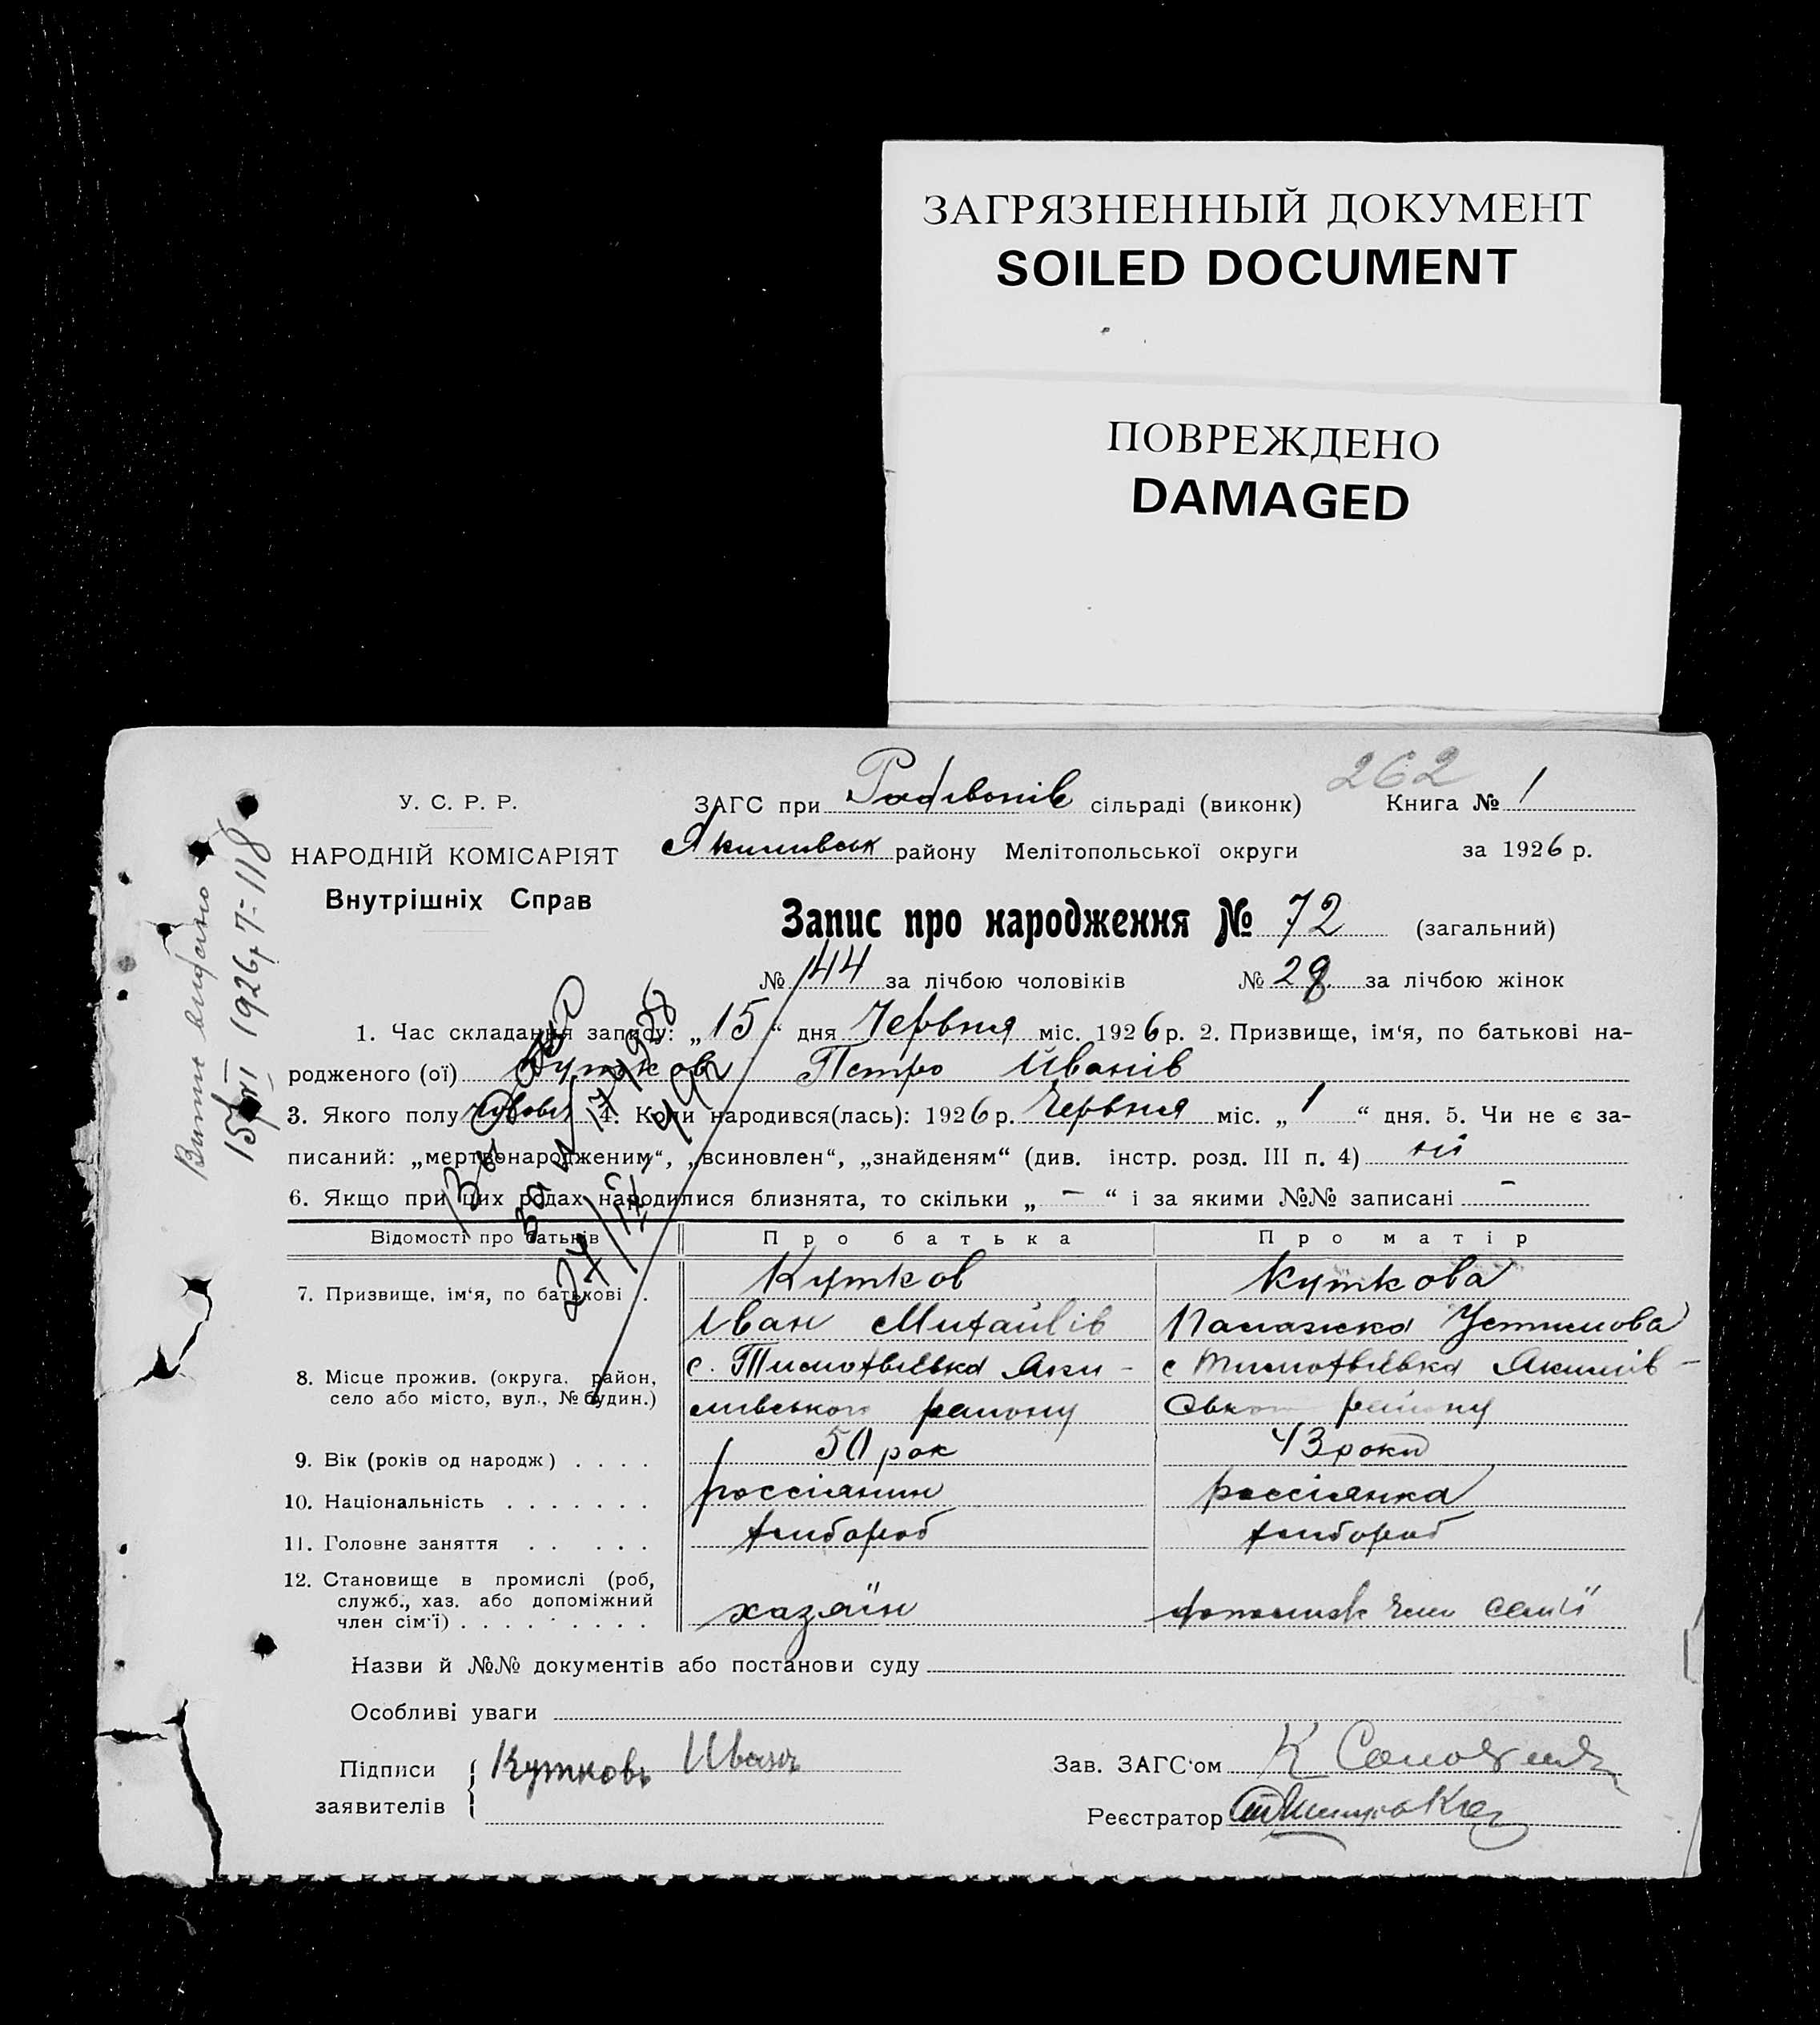 ЗАГРЯЗНЕННЫЙ ДОКУМЕНТ
SOILED DOCUMENT
ПОВРЕЖДЕНО
DAMAGED
262
У. С. Р. Р.
НАРОДНІЙ КОМІСАРІЯТ
Внутрішніх Справ
ЗАГС при Радивонів сільраді (виконк) Книга № 1
Якимивськ району Мелітопольської округи за 1926 р.
Запис про народження № 72 (загальний)
№ 44 за лічбою чоловіків № 28 за лічбою жінок
1. Час складання запису: „15“ дня Червня міс. 1926 р. 2. Призвище, ім'я, по батькові на-
родженого (ої) Кутков Петро Иванів
3. Якого полу чолов 4. Коли народився(лась): 1926 р. Червня міс. „1“ дня. 5. Чи не є за-
писаний: „мертвонародженим“, „всиновлен“, „знайденям“ (див. інстр. розд. III п. 4) ні
6. Якщо при цих родах народилися близнята, то скільки „ – “ і за якими №№ записані –
Відомості про батьків Про батька Про матір
7. Призвище, ім'я, по батькові . Кутков Куткова
Іван Михайлів Палажка Устимова
8. Місце прожив. (округа, район, с. Тимофвієвка Яки- с Тимофвієвка Якимів-
село або місто, вул., № будин.) мивського району ського району
9. Вік (років од народж) . . . . 50 рок 43 роки
10. Національність . . . . . . . россіянин россіянка
11. Головне заняття . . . . . хлибороб хлибороб
12. Становище в промислі (роб,
служб., хаз. або допоміжний
член сім'ї) . . . . . . . . . хазяїн допомиж член семїї
Назви й №№ документів або постанови суду
Особливі уваги
Підписи
заявителів
Кутковъ Иванъ
Зав. ЗАГС'ом К
Реєстратор
Витяг видано
15/VI 1926 р. № 118